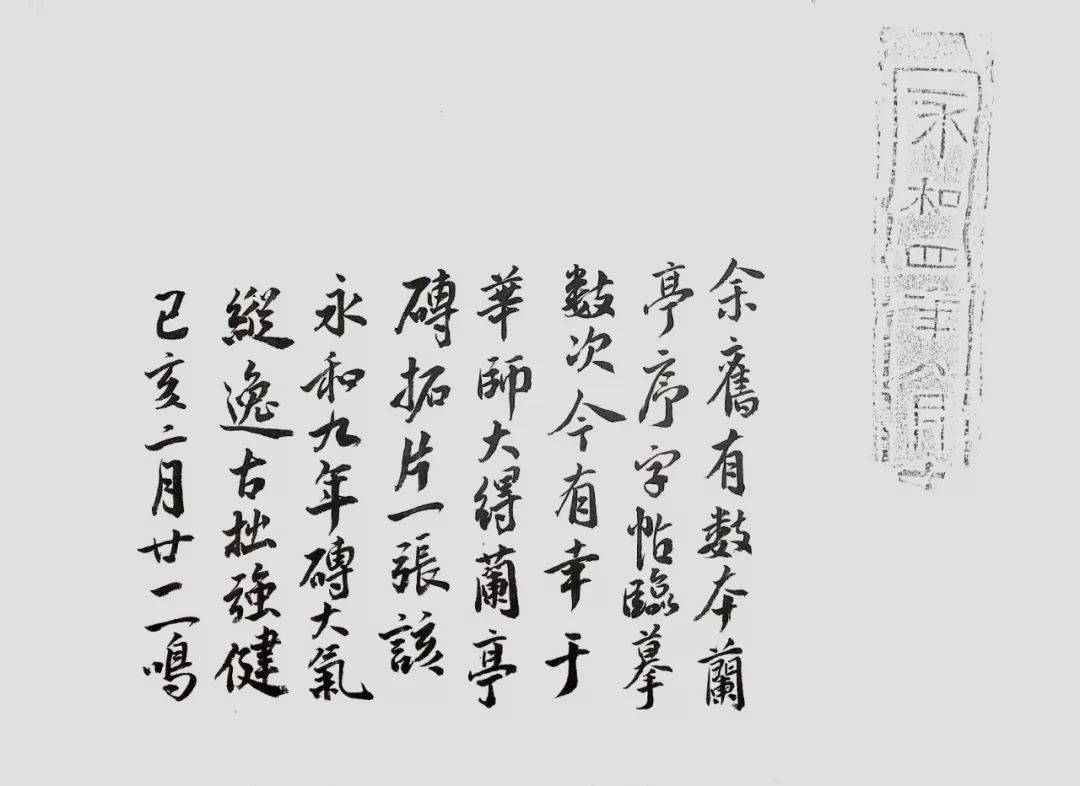 永和四年八月
余舊有数本蘭
亭序字帖臨摹
数次今有幸于
華師大得蘭亭
磚拓片一張該
永和九年磚大氣
縱逸古拙強健
己亥二月廿一二鳴